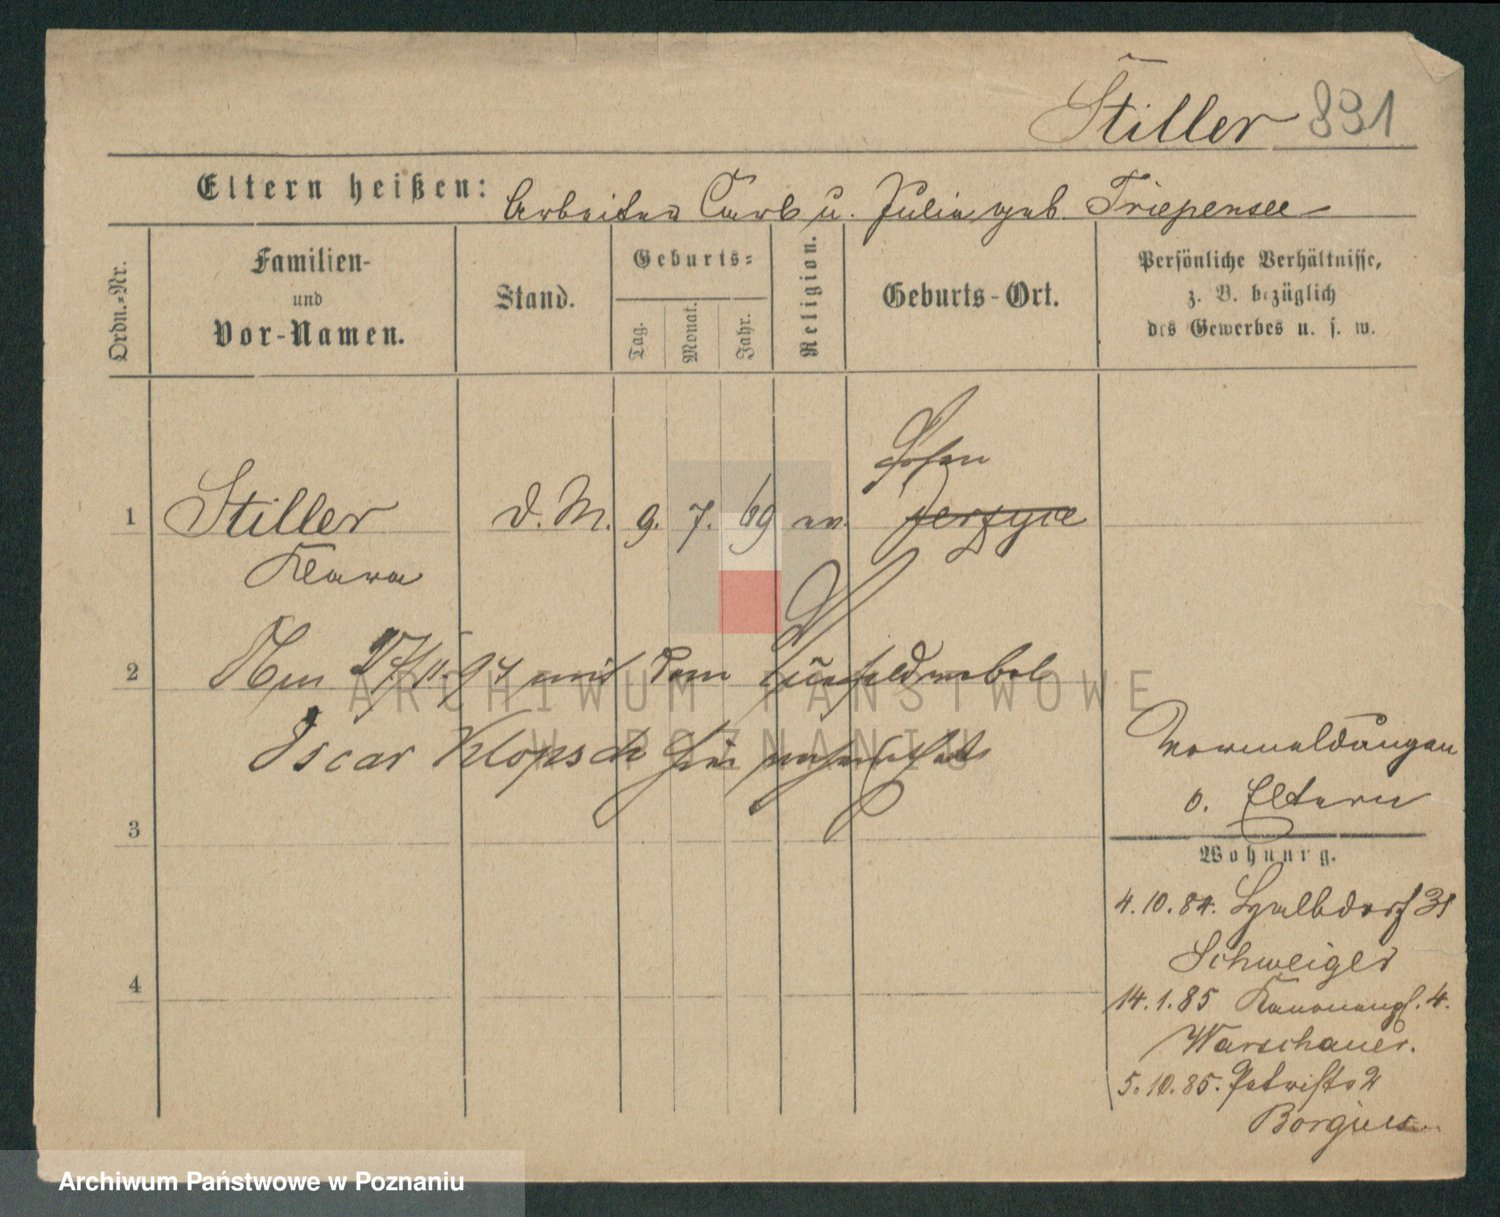 Stiller 891
Eltern heißen: Arbeiter Carl u. Julia geb. Triepensee
Ordn.-Nr.
Familien-
und
Vor-Namen.
Stand.
Geburts-
Tag.
Monat.
Jahr.
Religion.
Geburts-Ort.
Persönliche Verhältnisse,
z. B. bezüglich
des Gewerbes u. s. w.
Posen
1 Stiller d. M. 9. 7. 69 ev. Jerzyce
Klara
2 Am 27/11.97 mit dem
Oscar Klopsch hier verheirathet
Vormeldungen
b. Eltern
3
Wohnung.
4.10.84. Halbdorf 31
Schweiger
4
14.1.85 Kanonenpl. 4.
Warschauer.
5.10.85. Petristr 2
ARCHIWUM PAŃSTWOWE
W POZNANIU
Archiwum Państwowe w Poznaniu